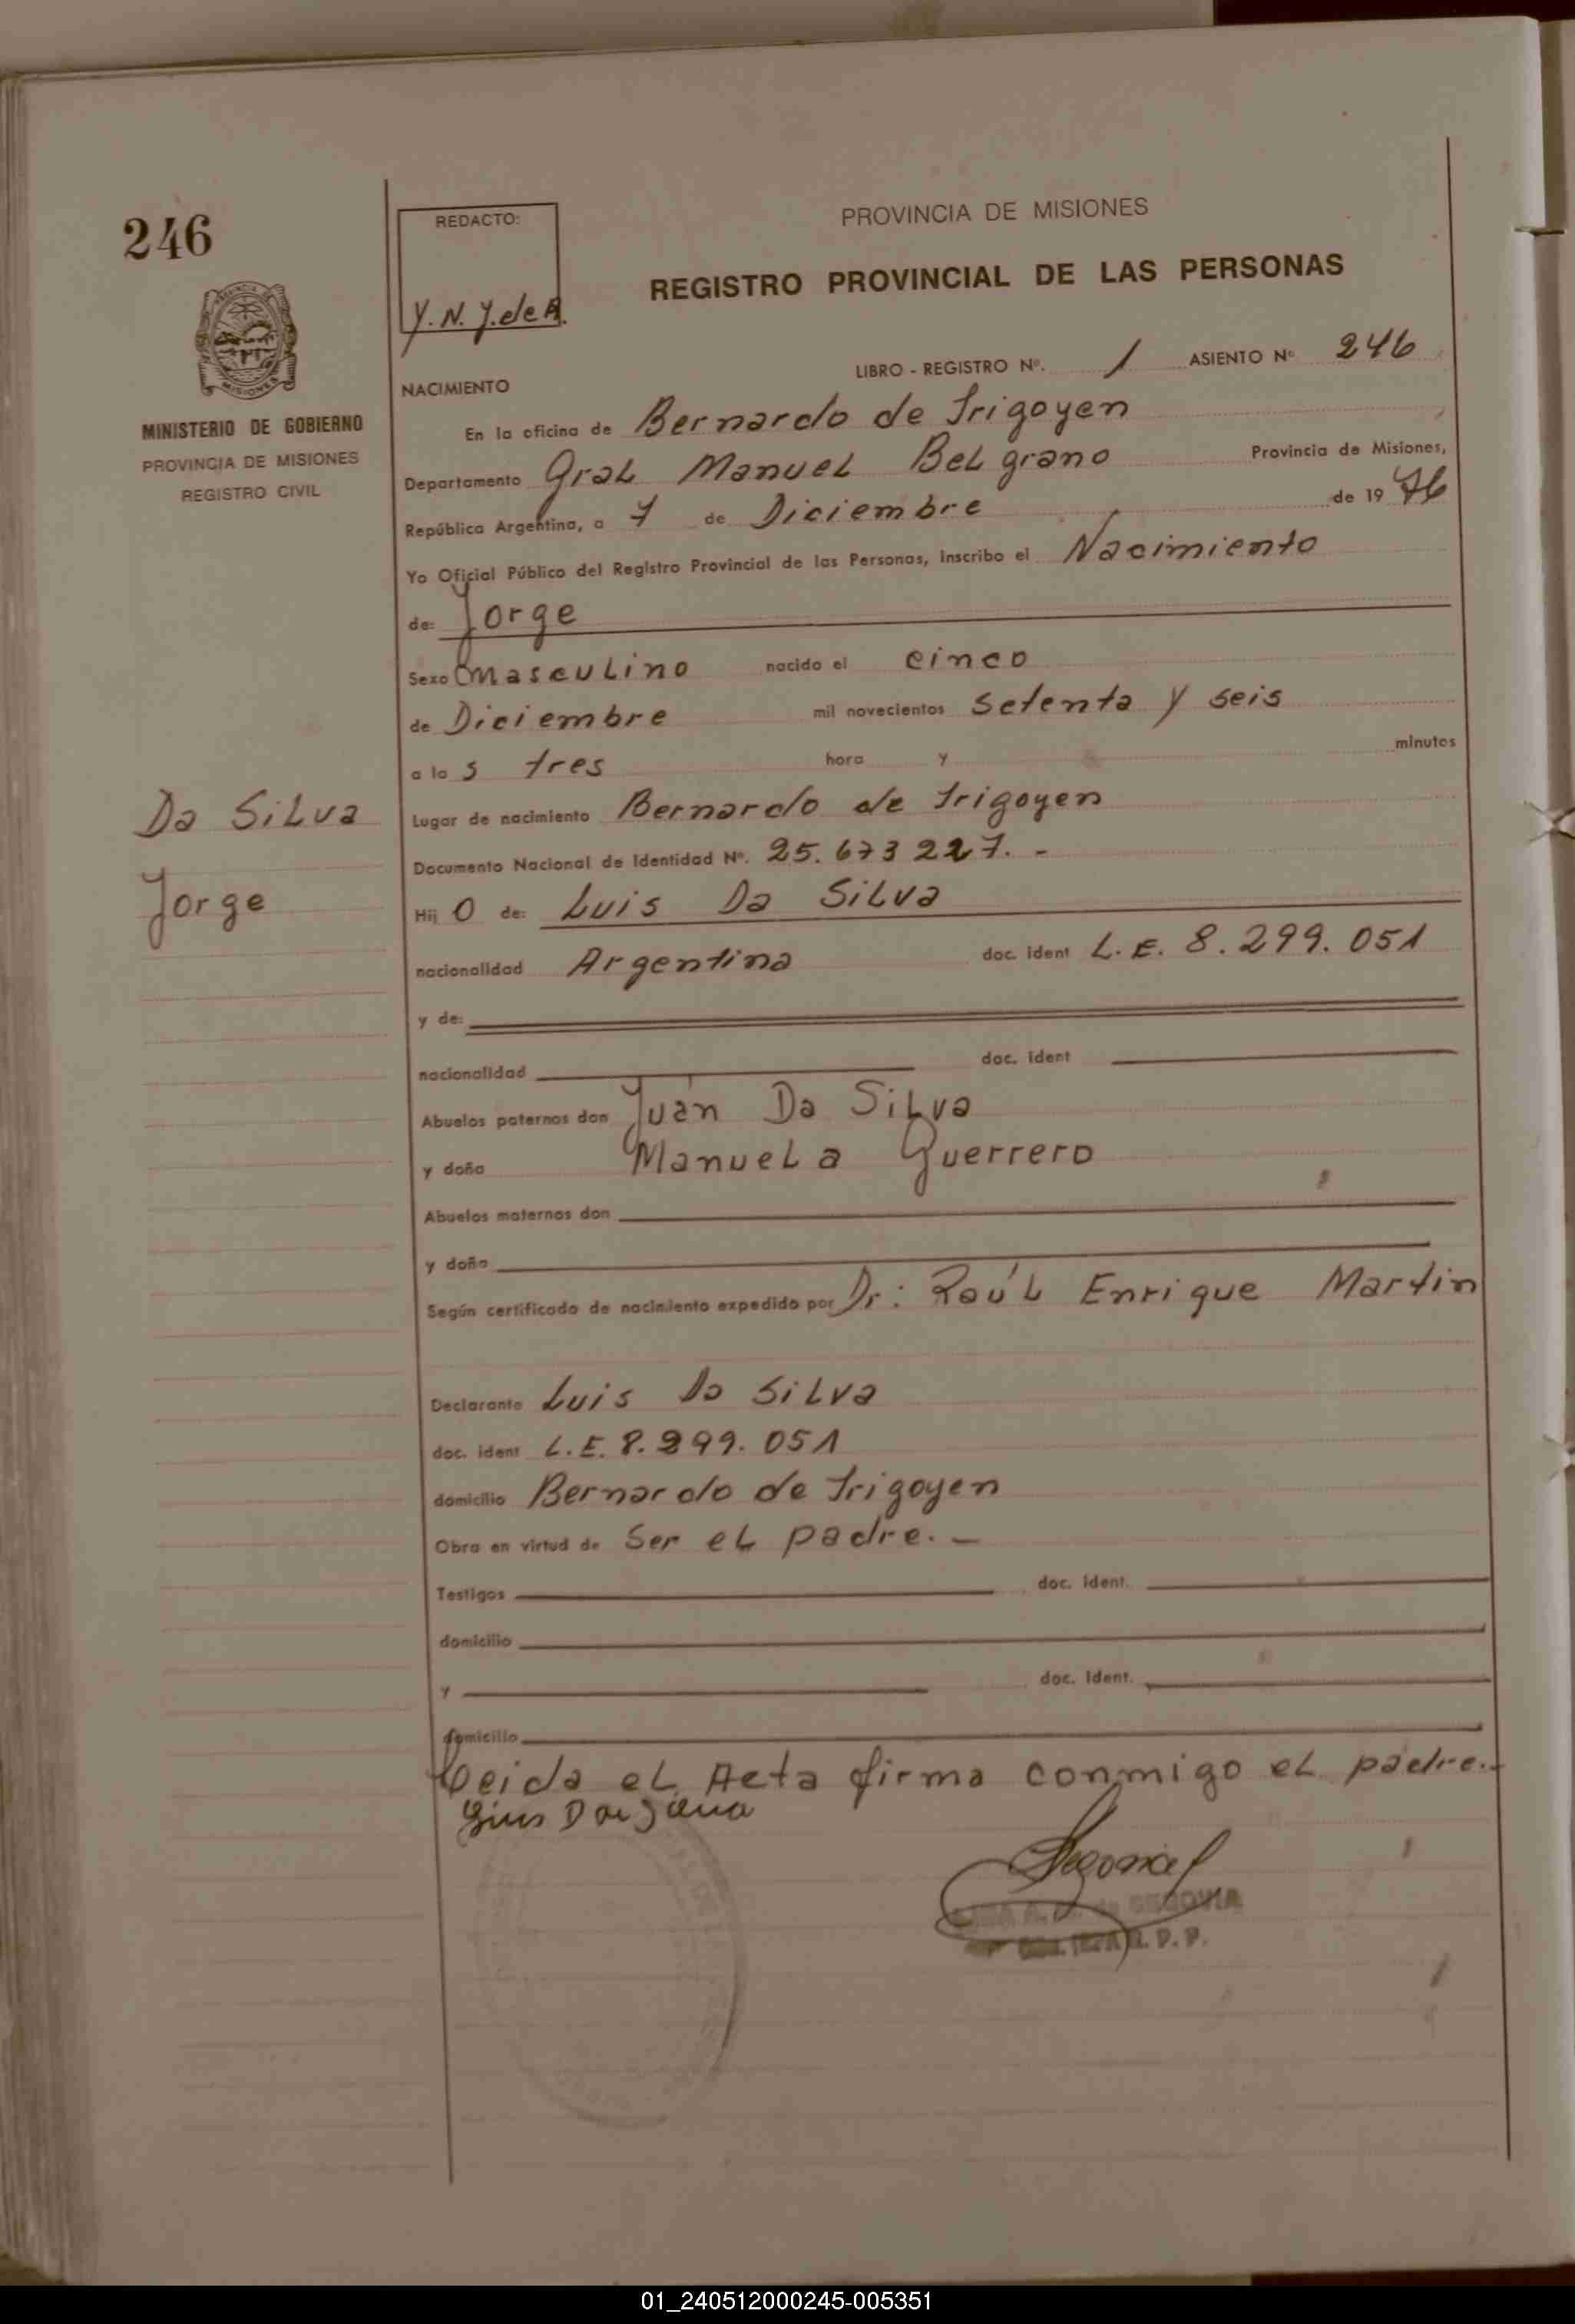 246
REDACTO:
Y. N. Y. de A.
PROVINCIA DE MISIONES
REGISTRO PROVINCIAL DE LAS PERSONAS
MINISTERIO DE GOBIERNO
PROVINCIA DE MISIONES
REGISTRO CIVIL
LIBRO - REGISTRO Nº. 1 ASIENTO Nº 246
NACIMIENTO
En la oficina de Bernardo de Irigoyen
Departamento Gral Manuel Belgrano Provincia de Misiones,
República Argentina, a 7 de Diciembre de 19 76
Yo Oficial Público del Registro Provincial de las Personas, inscribo el Nacimiento
de: Jorge
Sexo Masculino nacido el cinco
de Diciembre mil novecientos setenta y seis
a la s tres hora y minutos
Da Silva
Jorge
Lugar de nacimiento Bernardo de Irigoyen
Documento Nacional de Identidad Nº. 25.673 227. -
Hij o de: Luis Da Silva
nacionalidad Argentina doc. ident L. E. 8.299.051
y de:
nacionalidad doc. ident
Abuelos paternos don Juan Da Silva
y doña Manuela Guerrero
Abuelos maternos don
y doña
Según certificado de nacimiento expedido por Dr: Raúl Enrique Martin
Declarante Luis Da Silva
doc. ident L. E. 8.299.051
domicilio Bernardo de Irigoyen
Obra en virtud de Ser el padre. -
Testigos doc. ident.
domicilio
y doc. ident.
domicilio
Leida el Acta firma conmigo el padre.-
SEGOVIA
R. P. P.
01_240512000245-005351